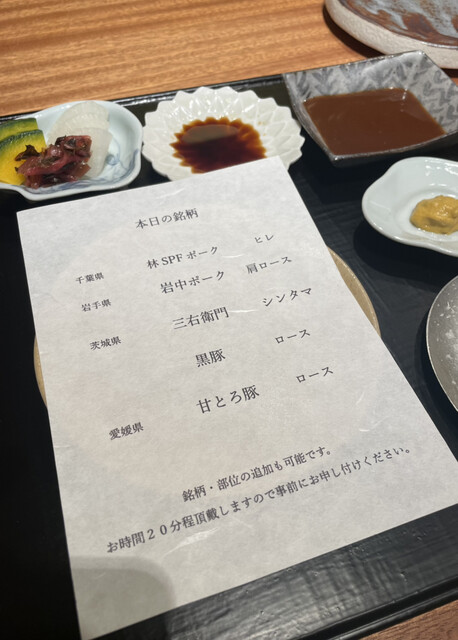 本日の銘柄
千葉県 林SPFポーク ヒレ
岩手県 岩中ポーク 肩ロース
茨城県 三右衛門 シンタマ
黒豚 ロース
愛媛県 甘とろ豚 ロース
銘柄・部位の追加も可能です。
お時間２０分程頂戴しますので事前にお申し付けください。